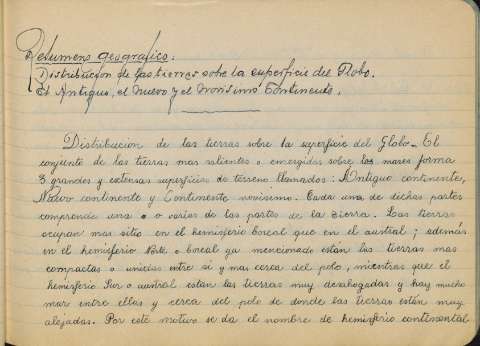 Resumens geografico.
Distribucion de las tierras sobre la superficie del Globo.
El Antiguo, el Nuevo y el Novisimo Continente.
Distribucion de las tierras sobre la superficie del Globo_ El
conjunto de las tierras mas salientes o emergidas sobre los mares forma
3 grandes y extensas superficies de terreno llamados: Antiguo continente,
Nuevo continente y Continente novisimo. Cada una de dichas partes
comprende una o varias de las partes de la tierra. Las tierras
ocupan mas sitio en el hemisferio boreal que en el austral; además
en el hemisferio Nte o boreal ya mencionado están las tierras mas
compactas o unidas entre si y mas cerca del polo, mientras que el
hemisferio Sur o austral estan las tierras muy desahogadas y hay mucho
mar entre ellas y cerca del polo de donde las tierras están muy
alejadas. Por este motivo se da el nombre de hemisferio continental